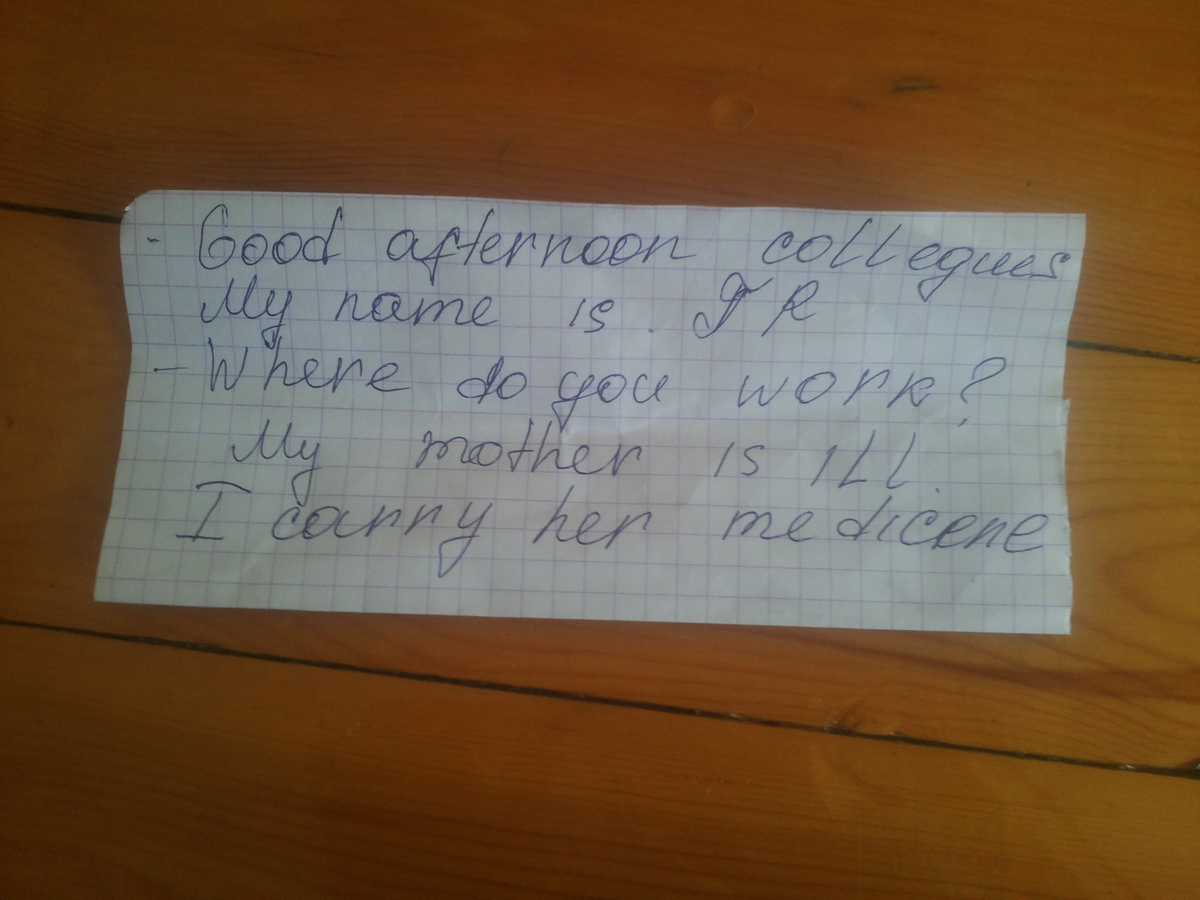 - Good afternoon collegues
My name is. J R
- Where do you work?
My mother is ill.
I carry her medicene